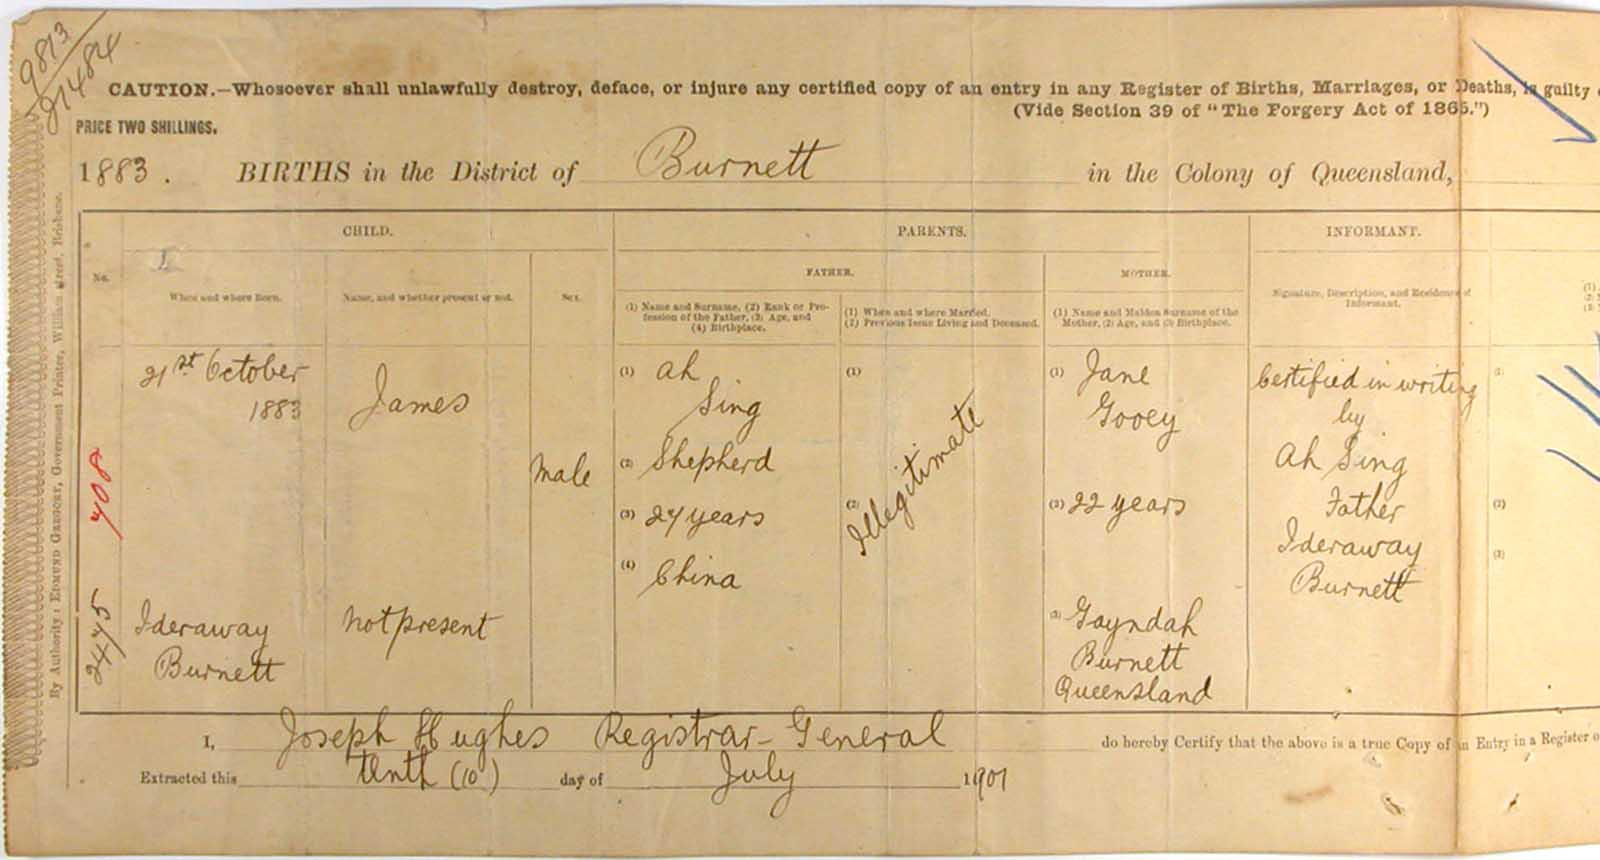 9813
21484
CAUTION.—Whosoever shall unlawfully destroy, deface, or injure any certified copy of an entry in any Register of Births, Marriages, or Deaths, is guilty
(Vide Section 39 of "The Forgery Act of 1865.")
PRICE TWO SHILLINGS.
1883. BIRTHS in the District of Burnett in the Colony of Queensland,
By Authority: EDMUND GREGORY, Government Printer, William street, Brisbane.
CHILD. PARENTS. INFORMANT.
FATHER. MOTHER.
No.
When and where Born.
Name, and whether present or not.
Sex.
(1) Name and Surname, (2) Rank or Pro-
fession of the Father, (3) Age, and
(4) Birthplace.
(1) When and where Married.
(2) Previous Issue Living and Deceased.
(1) Name and Maiden Surname of the
Mother, (2) Age, and (3) Birthplace.
Signature, Description, and Residence of
Informant.
408
2445
21st October
1883
Ideraway
Burnett
James
not present
Male
(1) Ah
Sing
(2) Shepherd
(3) 27 years
(4) China
(1)
(2)
Illegitimate
(1) Jane
Gooey
(2) 22 years
(3) Gayndah
Burnett
Queensland
Certified in writing
by
Ah Sing
Father
Ideraway
Burnett
(1)
(2)
(3)
I, Joseph Hughes Registrar-General do hereby Certify that the above is a true Copy of an Entry in a Register
Extracted this tenth (10) day of July 1901